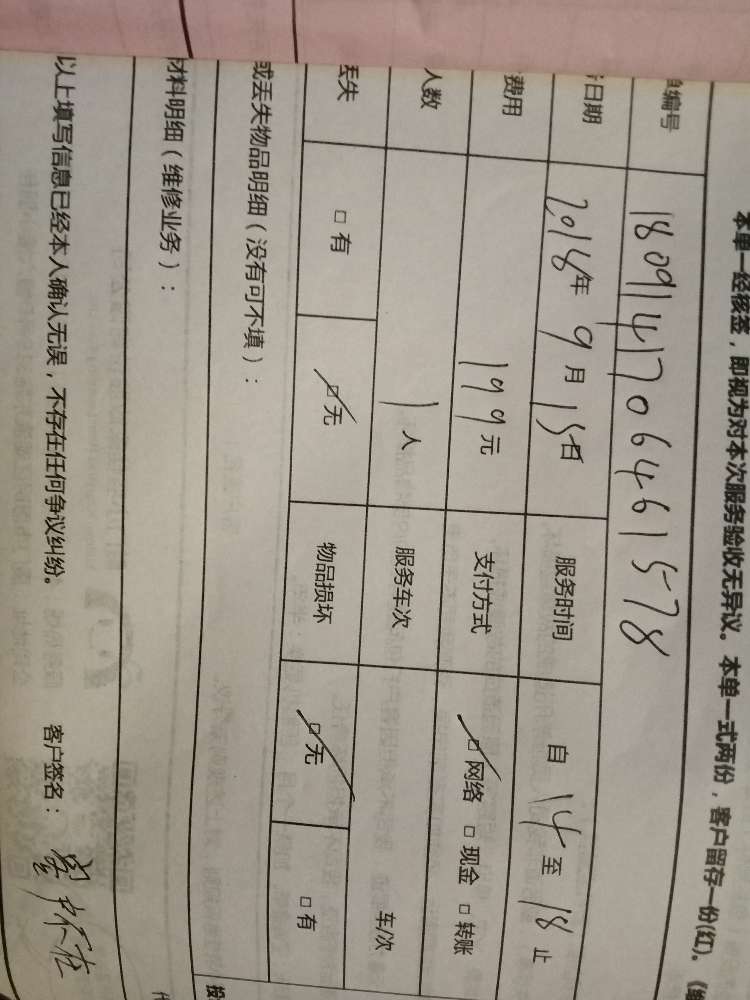 本单一经核签，即视为对本次服务验收无异议。本单一式两份，客户留存一份(红)。
编号 1809141706461578
日期 2018年9月15日 服务时间 自14至18止
费用 199元 支付方式 □网络 □现金 □转账
人数 1人 服务车次 车/次
丢失 □有 □无 物品损坏 □无 □有
或丢失物品明细（没有可不填）：
材料明细（维修业务）：
以上填写信息已经本人确认无误，不存在任何争议纠纷。 客户签名：